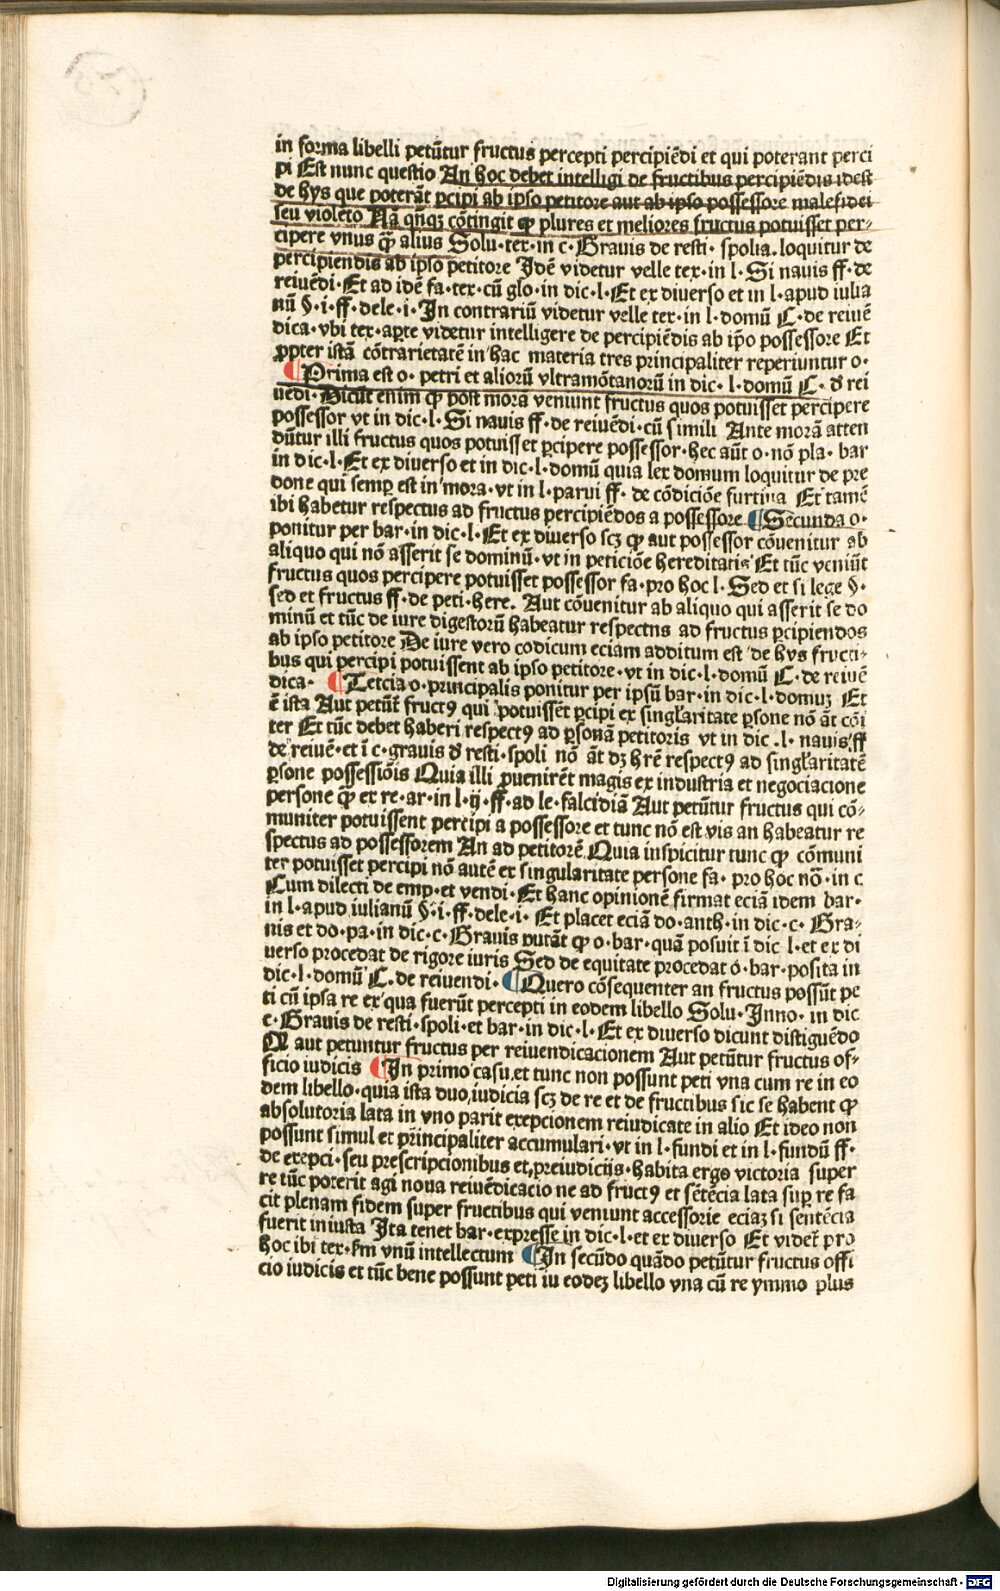 in forma libelli petūtur fructus percepti percipiēdi et qui poterant perci
pi Est nunc questio An hoc debet intelligi de fructibus percipiēdis idest
de hys que poterāt ꝑcipi ab ipso petitore aut ab ipso possessore malefidei
seu violēto Nā qñqꝫ cōtingit ꝙ plures et meliores fructus potuisset per⸗
cipere vnus q̄ꝫ alius Solu·tex·in c·Gravis de resti· spolia.loquitur de
percipiendis ab ipso petitore Idē videtur velle tex·in l·Si nauis ff·de
reiuēdi·Et ad idē fa·tex·cū glo·in dic·l·Et ex diuerso et in l·apud iulia
nū §·i·ff·dele·i·In contrariū videtur velle tex·in l·domū C·de reiuē
dica·vbi tex·aꝑte videtur intelligere de percipiēdis ab ip̄o possessore Et
ꝓpter istā cōtrarietatē in hac materia tres principaliter reperiuntur o·
¶Prima est o·petri et aliorū vltramōtanorū in dic·l·domū C·ꝺ rei
uēdi·Dicūt enim ꝙ post morā veniunt fructus quos potuisset percipere
possessor vt in dic·l·Si nauis ff·de reiuēdi·cū simili Ante morā atten
dūtur illi fructus quos potuisset ꝑcipere possessor·hec aūt o·nō pla·bar
in dic·l·Et ex diuerso et in dic·l·domū quia lex domum loquitur de pre
done qui semꝑ est in mora·vt in l·parui ff·de cōdiciōe furtiua Et tamē
ibi habetur respectus ad fructus percipiēdos a possessore ¶Secunda o·
ponitur per bar·in dic·l·Et ex diuerso scꝫ ꝙ aut possessor cōuenitur ab
aliquo qui nō asserit se dominū·vt in peticiōe hereditatis Et tūc veniūt
fructus quos percipere potuisset possessor fa·pro hoc l·Sed et si lege §·
sed et fructus ff·de peti·here. Aut cōuenitur ab aliquo qui asserit se do
minū et tūc de iure digestorū habeatur respectns ad fructus ꝑcipiendos
ab ipso petitore De iure vero codicum eciam additum est de hys fructi⸗
bus qui percipi potuissent ab ipso petitore·vt in dic·l·domū C·de reiuē
dica· ¶Tetcia o·principalis ponitur per ipsū bar·in dic·l·domuꝫ Et
ē ista Aut petūt̄ fructꝰ qui potuissēt ꝑcipi ex singl̄aritate ꝑsone nō āt cōi
ter Et tūc debet haberi respectꝰ ad ꝑsonā petitoris vt in dic·l·nauis ff
de reiuē·et ī c·grauis ꝺ resti·spoli nō āt dꝫ hr̄e respectꝰ ad singl̄aritatē
ꝑsone possessiōis Quia illi ꝓuenirēt magis ex industria et negociacione
persone q̄ꝫ ex re·ar·in l·ij·ff·ad le·falcidiā Aut petūtur fructus qui cō⸗
muniter potuissent percipi a possessore et tunc nō est vis an habeatur re
spectus ad possessorem An ad petitorē Quia inspicitur tunc ꝙ cōmuni
ter potuisset percipi nō autē ex singularitate persone fa·pro hoc nō·in c
Cum dilecti de emp·et vendi·Et hanc opinionē firmat eciā idem bar·
in l·apud iulianū §·i·ff·dele·i·Et placet eciā do·anth·in dic·c·Gra⸗
nis et do·pa·in dic·c·Grauis putāt ꝙ o·bar·quā posuit ī dic l·et ex di
uerso procedat de rigore iuris Sed de equitate procedat o·bar·posita in
dic·l·domū C·de reiuendi·¶Quero cōsequenter an fructus possūt pe
ti cū ipsa re ex qua fuerūt percepti in eodem libello Solu·Inno·in dic
c·Grauis de resti·spoli·et bar·in dic·l·Et ex diuerso dicunt distiguēdo
Q aut petuntur fructus per reiuendicacionem Aut petūtur fructus of⸗
ficio iudicis ¶In primo casu et tunc non possunt peti vna cum re in eo
dem libello·quia ista duo iudicia scꝫ de re et de fructibus sic se habent ꝙ
absolutoria lata in vno parit exepcionem reiudicate in alio Et ideo non
possunt simul et principaliter accumulari·vt in l·fundi et in l·fundū ff·
de exepci·seu prescripcionibus et preiudicijs·habita ergo victoria super
re tūc poterit agi noua reiuēdicacio ne ad fructꝰ et sētēcia lata suꝑ re fa
cit plenam fidem super fructibus qui veniunt accessorie eciaꝫ si sentēcia
fuerit iniusta Ita tenet bar·expresse in dic·l·et ex diuerso Et videt̄ pro
hoc ibi tex·fm vnū intellectum ¶In secūdo quādo petūtur fructus offi
cio iudicis et tūc bene possunt peti iu eodeꝫ libello vna cū re ymmo plus
Digitalisierung gefördert durch die Deutsche Forschungsgemeinschaft · DFG